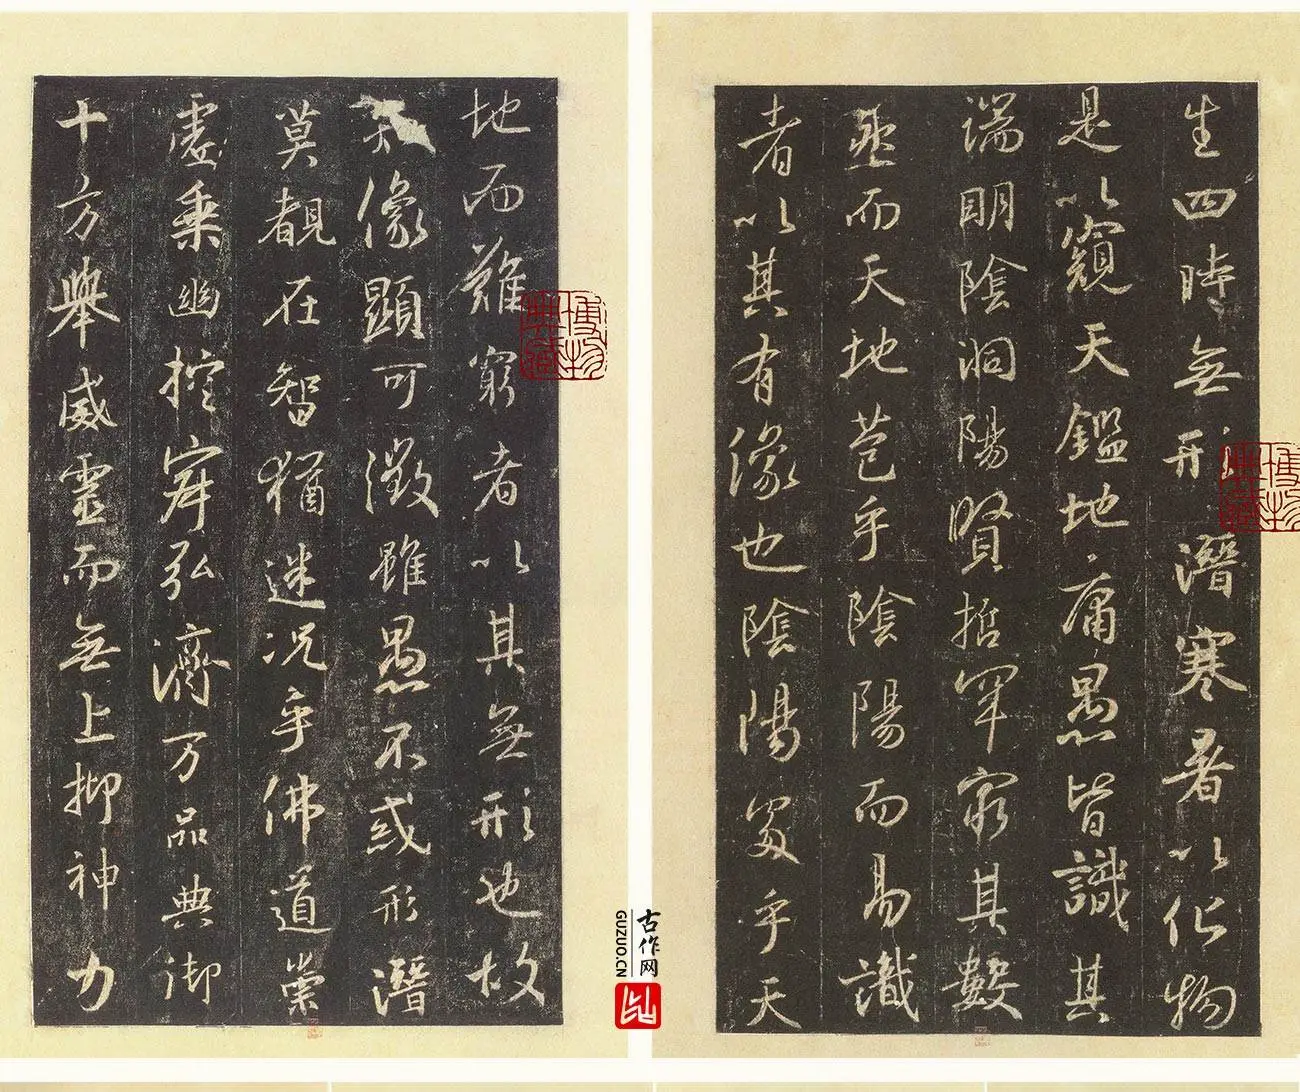 生四時無形潛寒暑以化物
是以窺天鑑地庸愚皆識其
端明陰洞陽賢哲罕窮其數
然而天地苞乎陰陽而易識
者以其有像也陰陽處乎天
地而難窮者以其無形也故
像顯可徵雖愚不惑形潛
莫覩在智猶迷況乎佛道崇
虛乘幽控寂弘濟万品典御
十方舉威靈而無上抑神力
古作网
GUZUO.CN